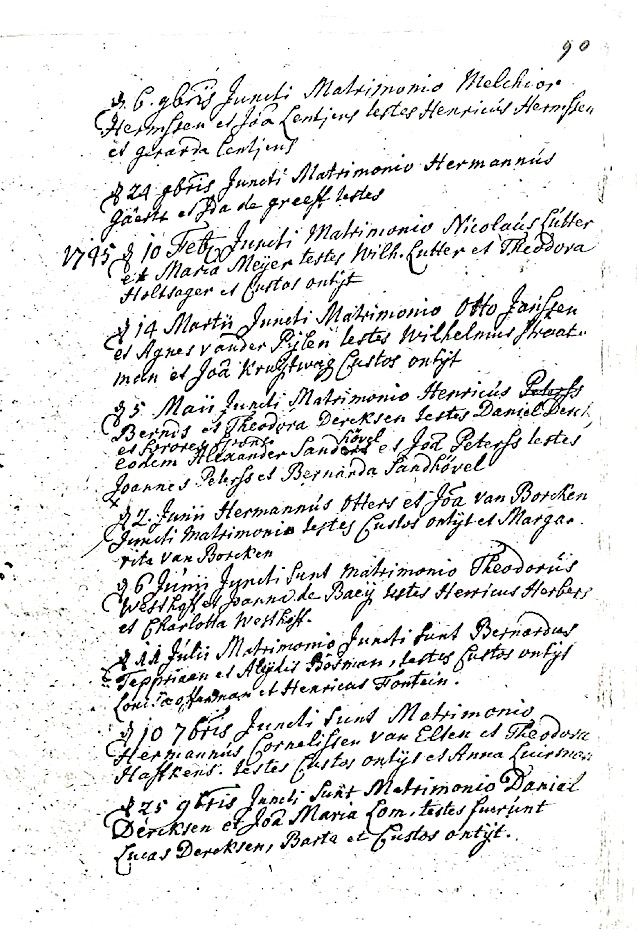 90
6. 9bris Juncti Matrimonio Melchior
Hermssen et Joã Lentjens testes Henricús Hermssen
et gerarda Lentjens
24 9bris Juncti Matrimonio Hermannús
et Ida de greeff testes
1745 10 Feb Juncti Matrimonio Nicolaús Lútter
et Maria Meijer testes Wilh. Lutter et Theodora
Holtsager et Custos ontijt
14 Martii Juncti Matrimonio Otto Janssen
et Agnes vander Pijlen testes Wilhelmus Straat-
man et Joã Kruijtwag Custos ontijt
5 Maii Juncti Matrimonio Henricús Peterss
Bernds et Theodora Dercksen testes Daniel Derck
et Sorores
eodem Alexander Sandhövel et Joã Peterss testes
Joannes Peterss et Bernarda Sandhövel
2. Junii Hermannús Otters et Joã van Borcken
Juncti matrimonio testes Custos ontijt et Marga-
rita van Borcken
6 Júnii Juncti Sunt matrimonio Theodorús
Westhoff et Joanna de Baeij testes Henricus Herbers
et Charlotta Westhoff.
11 Júlii Matrimonio Juncti Sunt Bernardus
et Alijdis Bosman, testes Custos ontijt
et Henricus Fontein.
10 7bris Juncti Sunt Matrimonio
Hermannús Cornelissen van Elten et Theodora
Haffkens. testes Custos ontijt et Anna Luirman
25 9bris Juncti Sunt Matrimonio Daniel
Dercksen et Joã Maria Lom. testes fuerúnt
Lucas Dercksen, Barta et Custos ontijt.